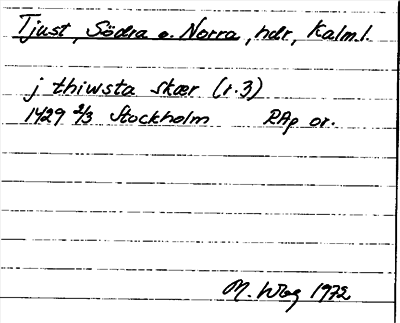 Tjust, Södra o. Norra, hdr, Kalm.l.
j thiwsta skær (r.3)
1429 2/3 Stockholm RAp or.
M. Wbg 1972